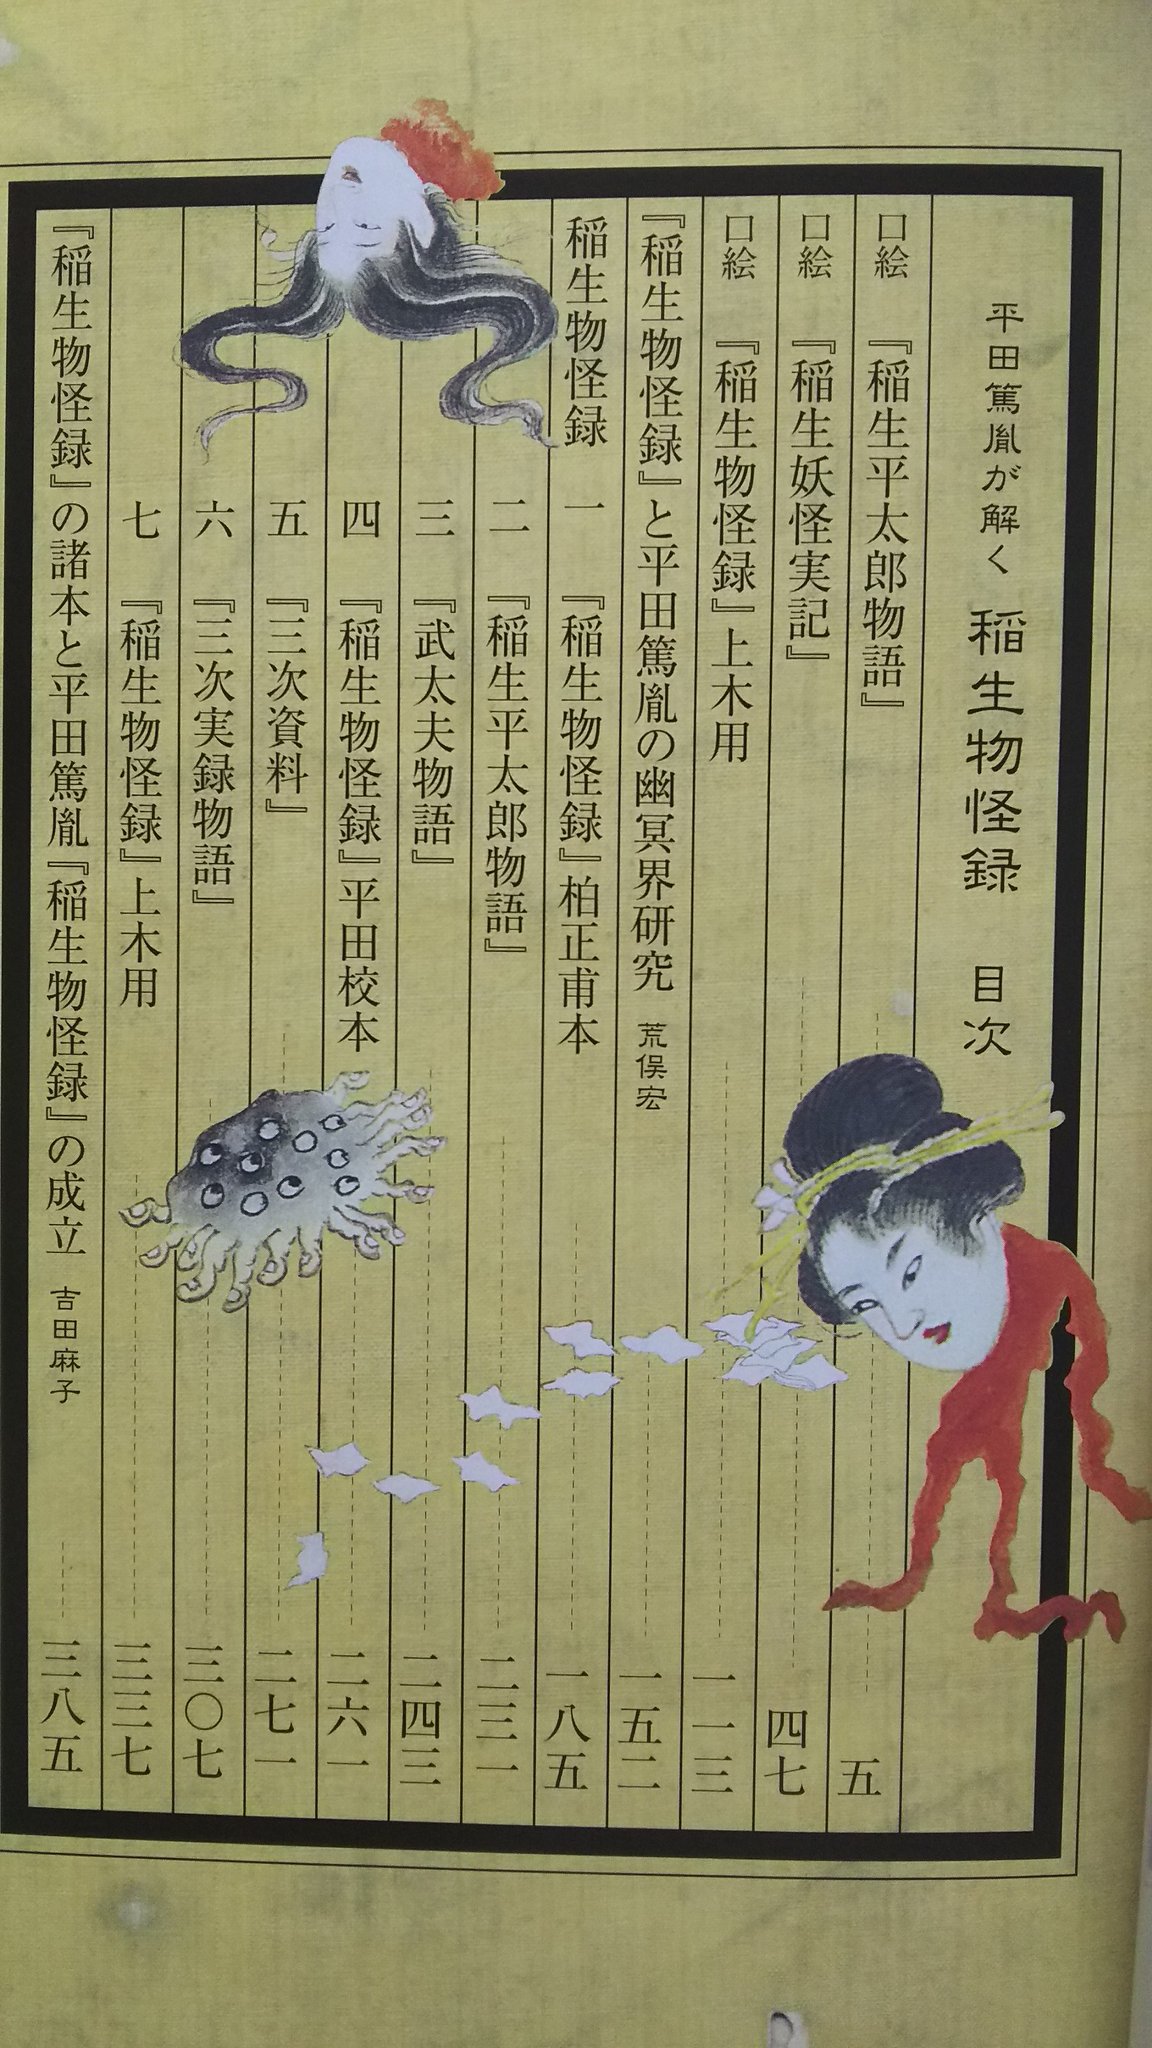 平田篤胤が解く 稲生物怪録 目次
口絵 『稲生平太郎物語』 五
口絵 『稲生妖怪実記』 四七
口絵 『稲生物怪録』上木用 一一三
『稲生物怪録』と平田篤胤の幽冥界研究 荒俣宏 一五二
稲生物怪録 一 『稲生物怪録』柏正甫本 一八五
二 『稲生平太郎物語』 二三一
三 『武太夫物語』 二四三
四 『稲生物怪録』平田校本 二六一
五 『三次資料』 二七一
六 『三次実録物語』 三〇七
七 『稲生物怪録』上木用 三三七
『稲生物怪録』の諸本と平田篤胤『稲生物怪録』の成立 吉田麻子 三八五